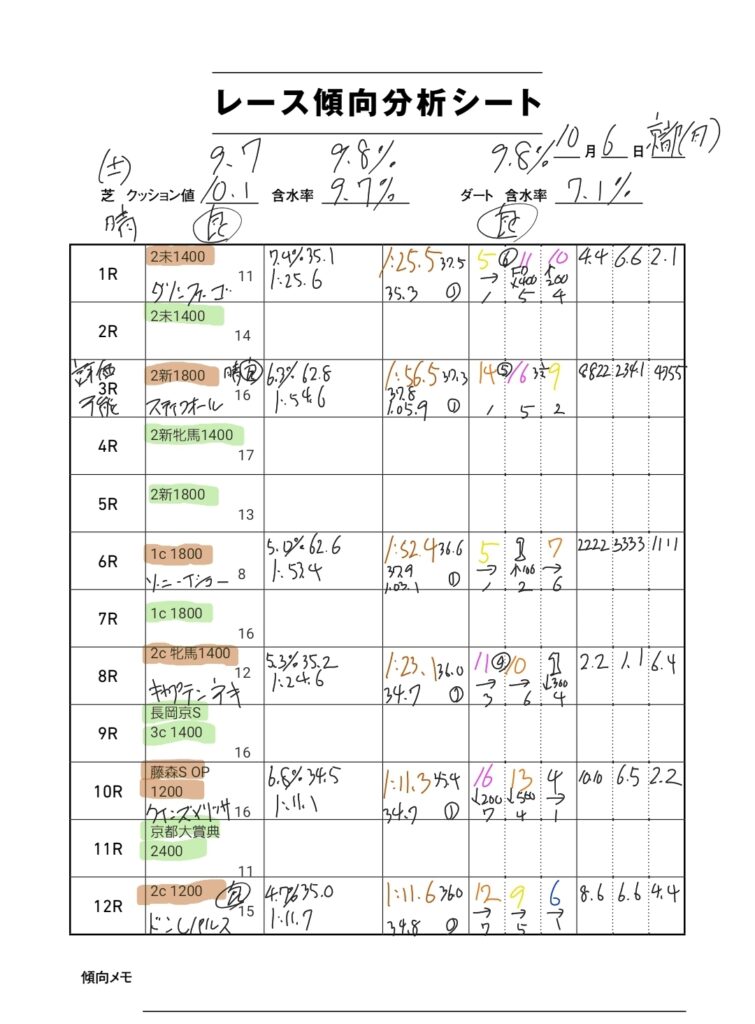 レース傾向分析シート
(土) 9.7 9.8% 9.8% 10月6日
芝 クッション値 10.1 含水率 9.7% ダート 含水率 7.1%
晴 良 良
1R 2未1400 11 7.4% 35.1 1:25.6 1:25.5 37.5 35.3 ① 5 11 10 1 5 4 4.4 6.6 2.1
2R 2未1400 14
評価
3R 2新1800 晴良 16 62.8 1:54.6 1:56.5 37.3 37.8 1:05.9 ① 14 ⑤ 16 9 1 5 2 8822 2341 4755
不能
4R 2新牝馬1400 17
5R 2新1800 13
6R 1c 1800 8 62.6 1:53.4 1:52.4 36.6 37.9 1:03.1 ① 5 1 7 → ↑100 → 1 2 6 2222 3333 1111
7R 1c 1800 16
8R 2c 牝馬1400 12 キャプテンネキ 5.3% 35.2 1:24.6 1:23.1 36.0 34.7 ① 11 ④ 10 1 → → ↓300 3 6 4 2.2 1.1 6.4
長岡京S
9R 3c 1400 16
藤森S OP
10R 1200 16 クインズメリッサ 6.8% 34.5 1:11.1 1:11.3 34.7 ① 16 13 4 ↓200 ↓500 → 7 4 1 10.10 6.5 2.2
京都大賞典
11R 2400 11
12R 2c 1200 良 15 4.7% 35.0 1:11.7 1:11.6 36.0 34.8 12 9 6 → → → 7 5 1 8.6 6.6 4.4
傾向メモ